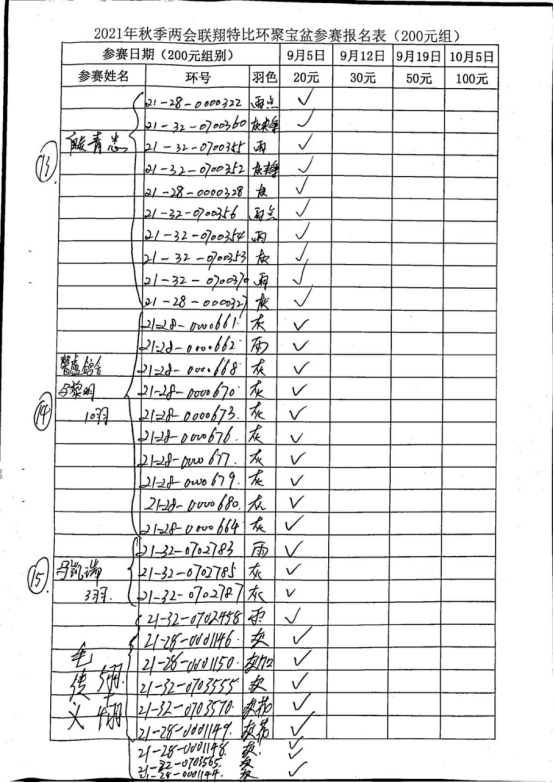 2021年秋季两会联翔特比环聚宝盆参赛报名表（200元组）
参赛日期（200元组别） 9月5日 9月12日 9月19日 10月5日
参赛姓名 环号 羽色 20元 30元 50元 100元
21-28-0000322 雨点 ✓
21-32-0700360 ✓
21-32-0700355 雨 ✓
13 青忠
21-32-0700352 ✓
21-28-0000328 灰 ✓
21-32-0700356 雨点 ✓
21-32-0700354 雨 ✓
21-32-0700353 灰 ✓
21-32-0700370 雨 ✓
21-28-0000327 灰 ✓
21-28-0000661 灰 ✓
21-28-0000662 雨 ✓
21-28-0000668 灰 ✓
马黎明 21-28-0000670 灰 ✓
14 10羽 21-28-0000673 灰 ✓
21-28-0000676 灰 ✓
21-28-0000677 灰 ✓
21-28-0000679 灰 ✓
21-28-0000680 灰 ✓
21-28-0000664 灰 ✓
21-32-0702783 雨 ✓
15 马凯瑞 21-32-0702785 灰 ✓
3羽 21-32-0702787 灰 ✓
21-32-0702458 雨 ✓
21-28-0001146 ✓
毛传义 21-28-0001150 ✓
21-32-0703555 ✓
21-32-0703570 ✓
21-28-0001149 ✓
21-28-0001148 ✓
21-32-0703565 ✓
21-28-0001144 ✓